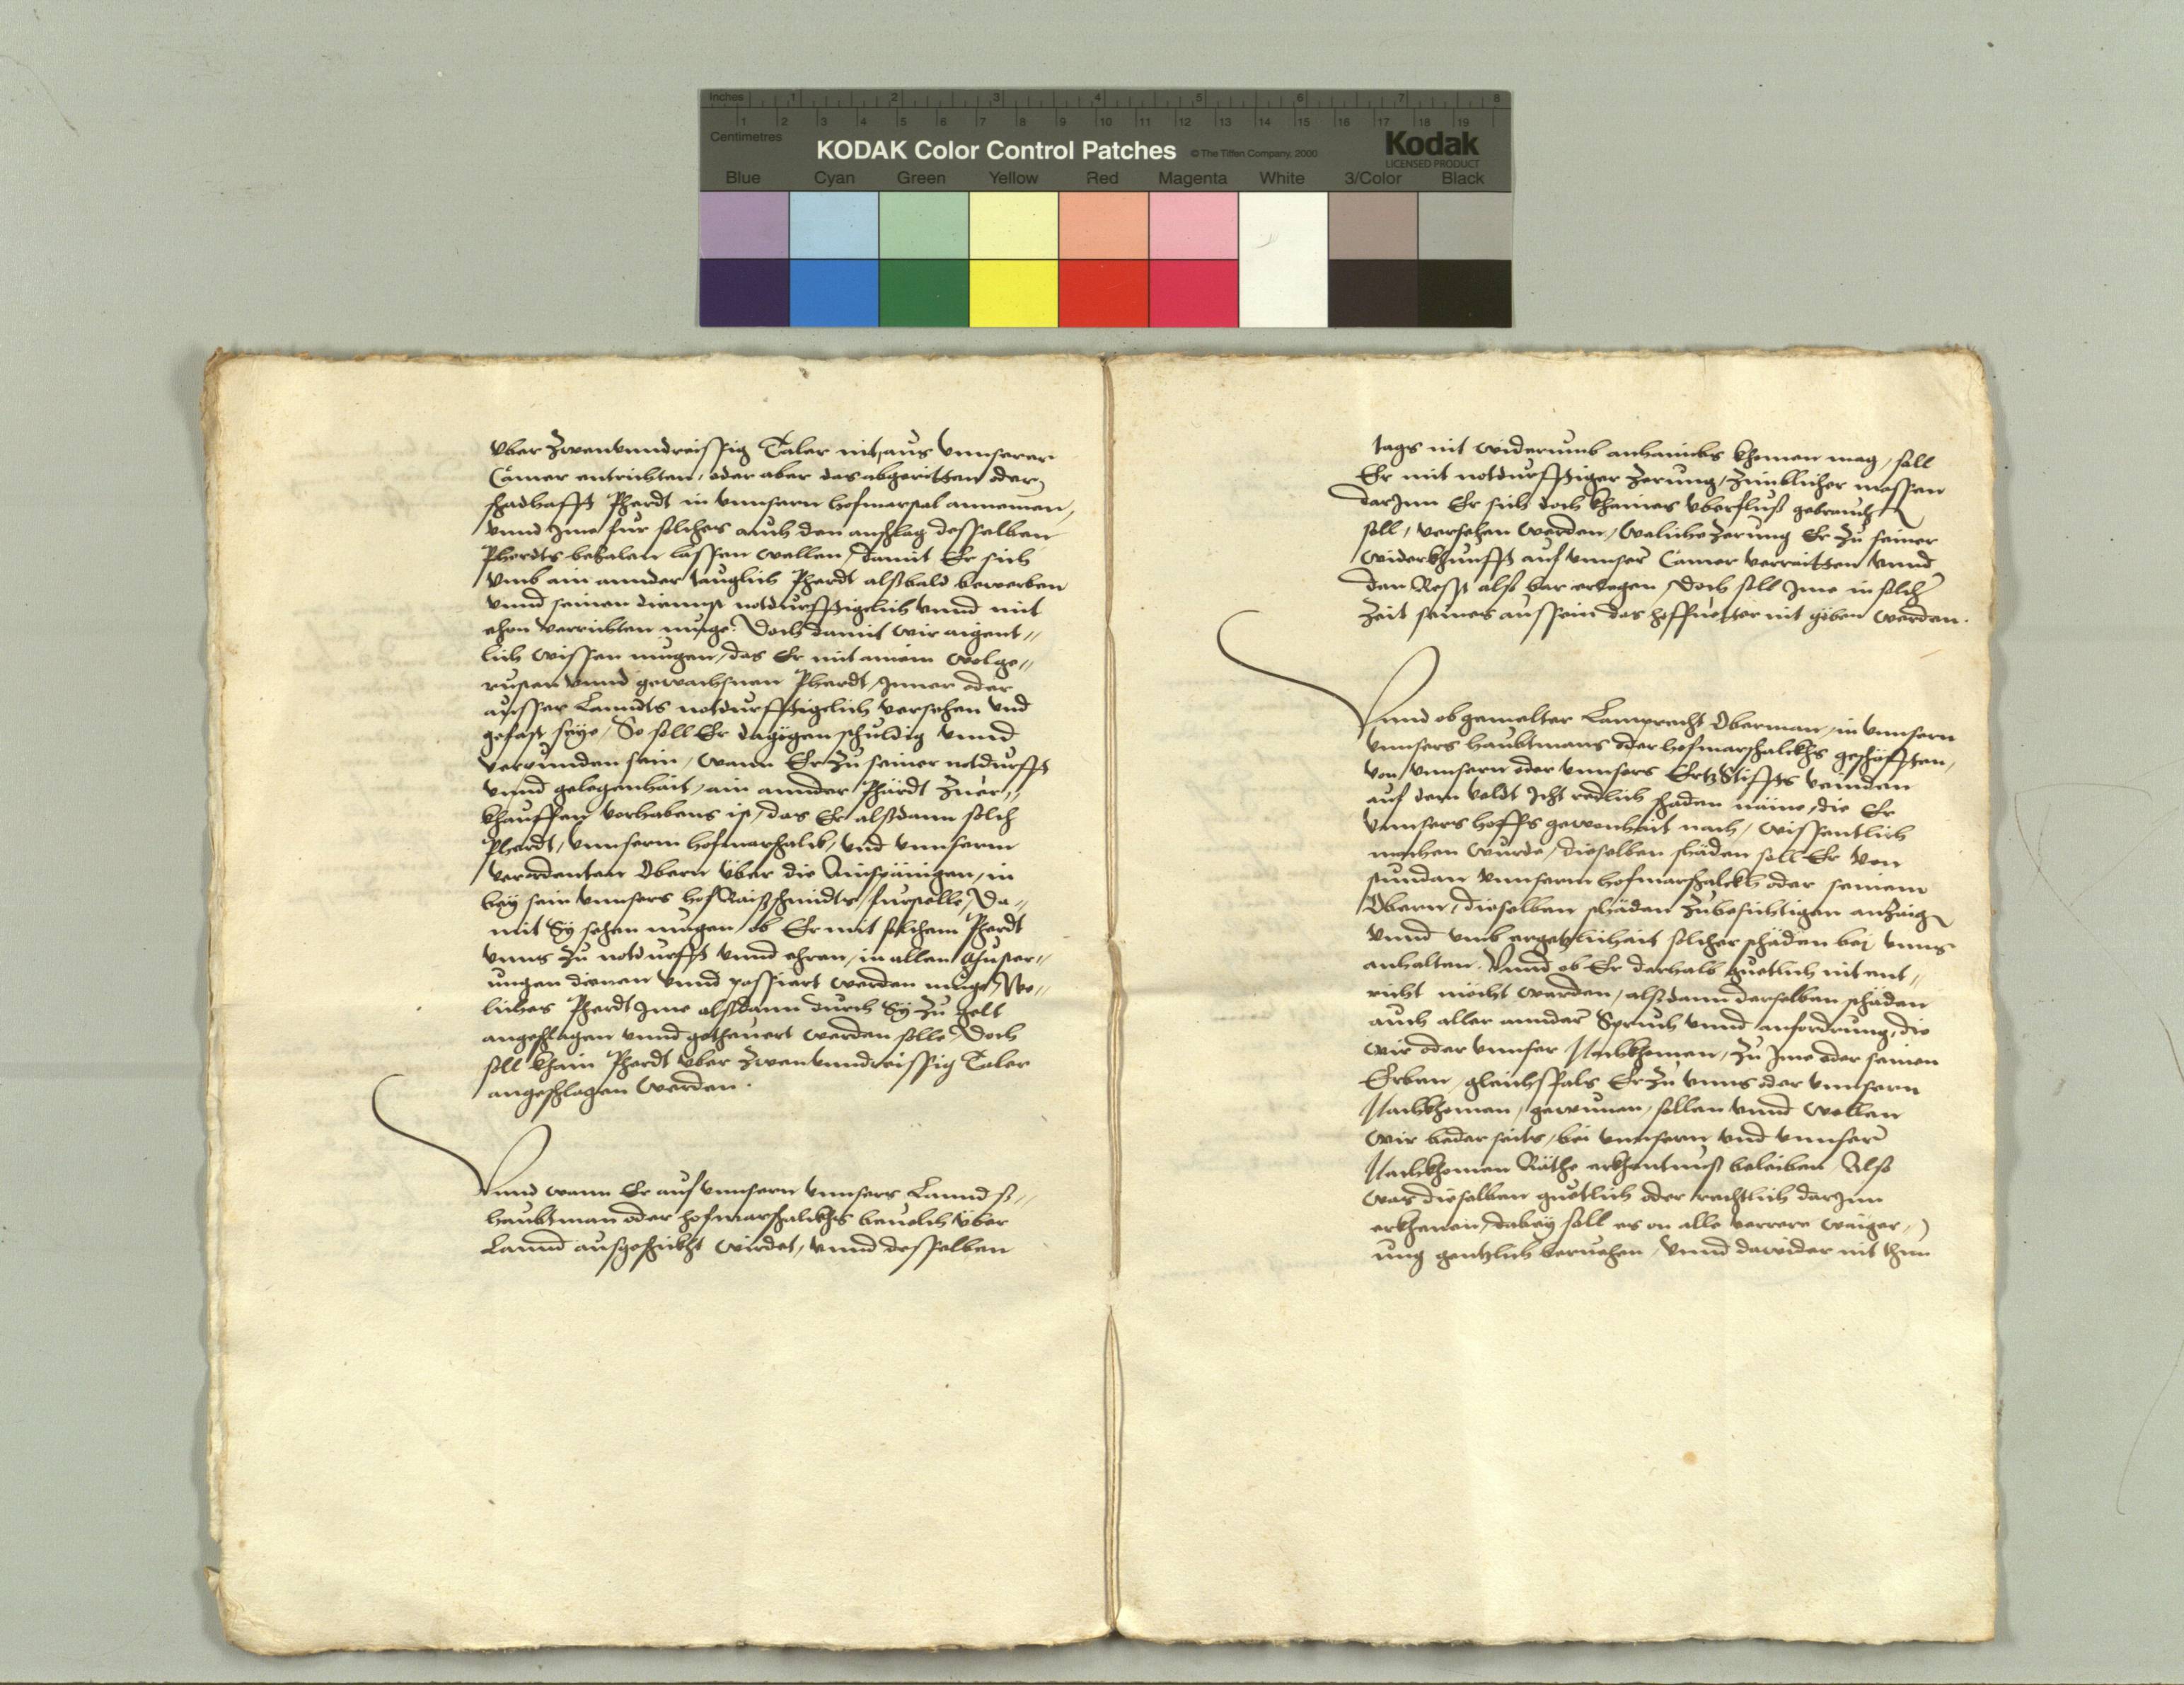 Inches 1 2 3 4 5 6 7 8
1 2 3 4 5 6 7 8 9 10 11 12 13 14 15 16 17 18 19
Centimetres
KODAK Color Control Patches © The Tiffen Company, 2000 Kodak
LICENSED PRODUCT
Blue Cyan Green Yellow Red Magenta White 3/Color Black
vber Zwenvnndreissig Taler nit, aus vnnserer
Camer entrichten, oder aber das abgeritten oder
schadhafft Pherdt in vnnsern hofmarstal annemen,
vnnd Jme fur solches auch den anschlag desselben
Pherdts bezalen lassen wellen, damit Er sich
vmb ain annder tauglich Pherdt alßbald bewerben
vnnd seinen diennst notdurfftigclich vnnd mit
ehen verrichten muge. Doch damit wir aigent„
lich wissen mugen, das Er mit ainem wolge„
rusten vnnd gewachsnen Pherdt, Inner oder
ausser Lanndts notdurfftigclich versehen vnd
gefast seye, So soll Er dagegen schuldig vnnd
verpunden sein, wann Er zu seiner notdurfft
vnnd gelegenhait, ain annder Pherdt zuer„
khauffen vorhabens ist, das Er alßdann solch
Pherdt, vnnserm hofmarschalch, vnd vnnserm
verordenten Obern vber die Ainspänigen, in
bey sein vnnsers hof Raißschmidts, furstelle, Da„
mit Sy sehen mugen ob Er mit solchem Pherdt
vnns zu notdurfft vnnd ehren, in allen Muster„
ungen dienen vnnd passiert werden muge, We„
liches Pherdt Jme alßdann durch Sy zu gelt
angeschlagen vnnd getheuert werden solle, Doch
soll khain Pherdt vber Zwenvnndreissig Taler
angeschlagen werden.
Vnnd wann Er auf vnnsern vnnsers Lannds„
haubtman oder hofmarschalckhs beuelch vber
Lannd außgeschickht wirdet, vnnd desselben
tags nit widerumb anhaimbs khomen mag, soll
Er mit notdurfftiger Zerung, Zimblicher massen
darjnn Er sich doch khaines vberfluß gebrauchen
soll, versehen werden, Weliche Zerung Er zu seiner
widerkhunfft auf vnnser Camer verraitten vnnd
den Resst alß bar erlegen, Doch soll Jme in solcher
Zeit seines aussein das hoffuetter nit geben werden.
Vnnd ob gemelter Lamprecht Oberman, in vnnsern
vnnsers haubtmans oder hofmarschalckhs geschefften,
von vnnsern oder vnnsers Ertzstiffts veinden
auf dem veldt Icht redlich schaden näme, die Er
vnnsers hoffs gewonhait nach, wissentlich
machen wurde, dieselben schäden soll Er von
stundan vnnserm hofmarschalckh oder seinem
Obern, dieselben schäden zubesichtigen anzaigen
vnnd vmb ergetzlichait solcher schäden bei vnns
anhalten. Vnnd ob Er derhalb guetlich nit ent„
richt möcht werden, alßdann derselben schäden
auch aller annder Spruch vnnd anfordrung, die
wir oder vnnser Nachkhomen, zu Jme oder seinen
Erben, gleichsfals Er zu vnns oder vnnsern
Nachkhomen, gewunnen, sollen vnnd wellen
wir beder seits, bei vnnsern vnd vnnser
Nachkhomen Räthe erkhantnuß beleiben, Alß
was dieselben guetlich oder rechtlich darjnn
erkhenen, dabey soll es on alle verrere waiger„
ung gentzlich beruehen, vnnd dawider nit thun